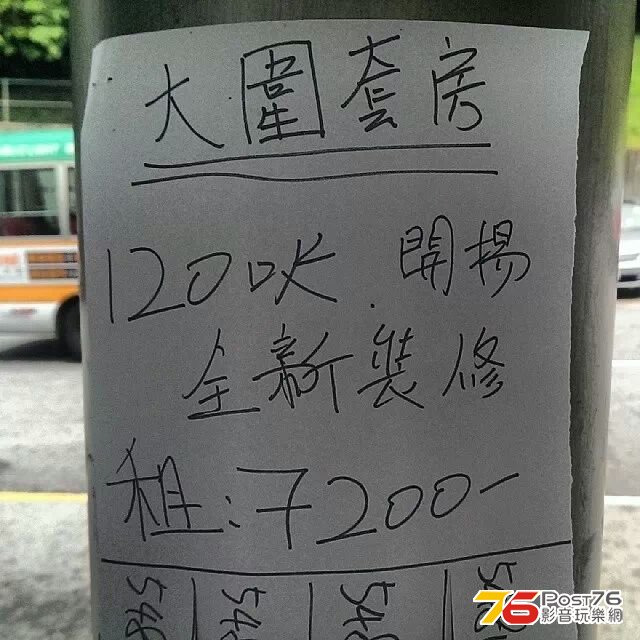 大圍套房
120呎. 開揚
全新裝修
租:7200-
76 Post76
影音玩樂網